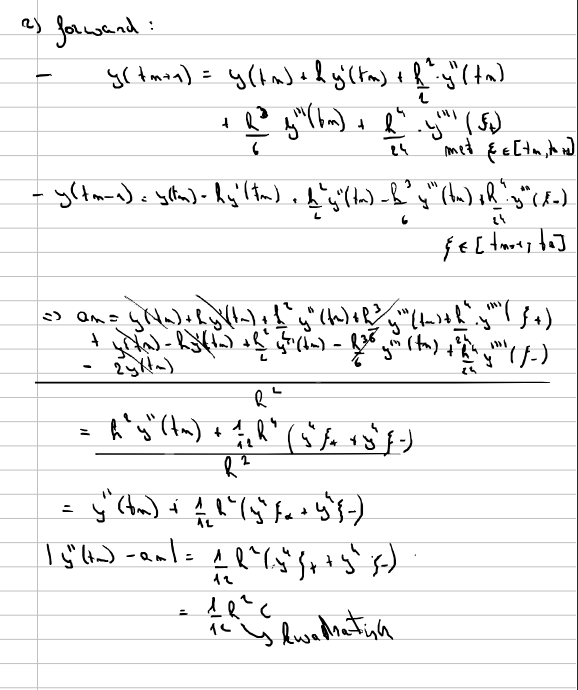 2) forward :
- y(tm+1) = y(tm) + h y'(tm) + h²/2 · y''(tm)
+ h³/6 y'''(tm) + h⁴/24 · y''''(ξ+)
met ξ ∈ [tm, tm+1]
- y(tm-1) = y(tm) - h y'(tm) + h²/2 y''(tm) - h³/6 y'''(tm) + h⁴/24 · y''''(ξ-)
ξ ∈ [tm-1, tm]
=> am = y(tm) + h y'(tm) + h²/2 y''(tm) + h³/6 y'''(tm) + h⁴/24 · y''''(ξ+)
+ y(tm) - h y'(tm) + h²/2 y''(tm) - h³/6 y'''(tm) + h⁴/24 y''''(ξ-)
- 2y(tm)
h²
= h² y''(tm) + 1/12 h⁴ (y⁴ ξ+ + y⁴ ξ-)
h²
= y''(tm) + 1/12 h² (y⁴ ξ+ + y⁴ ξ-)
|y''(tm) - am| = 1/12 h² (y⁴ ξ+ + y⁴ ξ-)
= 1/12 h² C
↳ kwadratisch